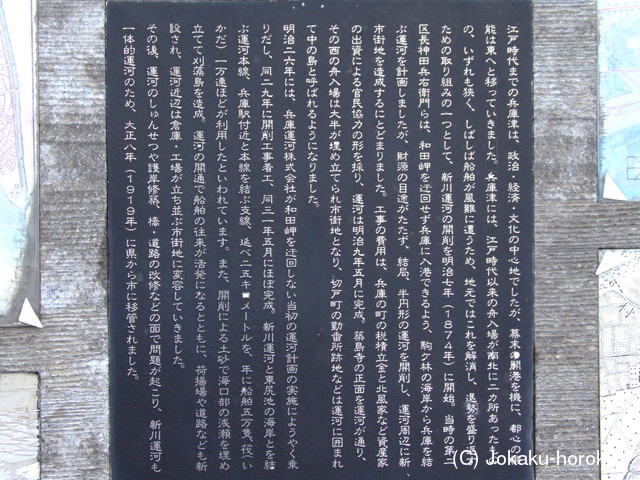 江戸時代までの兵庫津は、政治・経済・文化の中心地でしたが、幕末の開港を機に、都心の
能は東へと移っていきました。兵庫津には、江戸時代以来の舟入場が南北に二カ所あった
の、いずれも狭く、しばしば船舶が風難に遭うため、地元ではこれを解消し、退勢を盛り
ための取り組みの一つとして、新川運河の開削を明治七年（1874年）に開始。当時の第一
区長神田兵右衛門らは、和田岬を迂回せず兵庫に入港できるよう、駒ケ林の海岸から兵庫を結
ぶ運河を計画しましたが、財源の目途がたたず、結局、半円形の運河を開削し、運河周辺に新
市街地を造成するにとどまりました。工事の費用は、兵庫の町の税積立金と北風家など資産家
の出資による官民協力の形を採り、運河は明治九年五月に完成。築島寺の正面を運河が通り、
その西の舟入場は大半が埋め立てられ市街地となり、切戸町の勤番所跡地などは運河に囲まれ
て中の島と呼ばれるようになりました。
明治二六年には、兵庫運河株式会社が和田岬を迂回しない当初の運河計画の実施にようやく乗
りだし、同二九年に開削工事着工、同三一年五月にほぼ完成。新川運河と東尻池の海岸とを結
ぶ運河本線、兵庫駅付近と本線を結ぶ支線、延べ二五キロメートルを、年に船舶五万隻、筏（い
かだ）一万連ほどが利用したといわれています。また、開削による土砂で海口部の浅瀬を埋め
立てて苅藻島を造成。運河の開通で船舶の往来が活発になるとともに、荷揚場や道路なども新
設され、運河近辺は倉庫、工場が立ち並ぶ市街地に変容していきました。
その後、運河のしゅんせつや護岸修築、橋、道路の改修などの面で問題が起こり、新川運河も
一体的運河のため、大正八年（1919年）に県から市に移管されました。
(G) Jokaku-horok